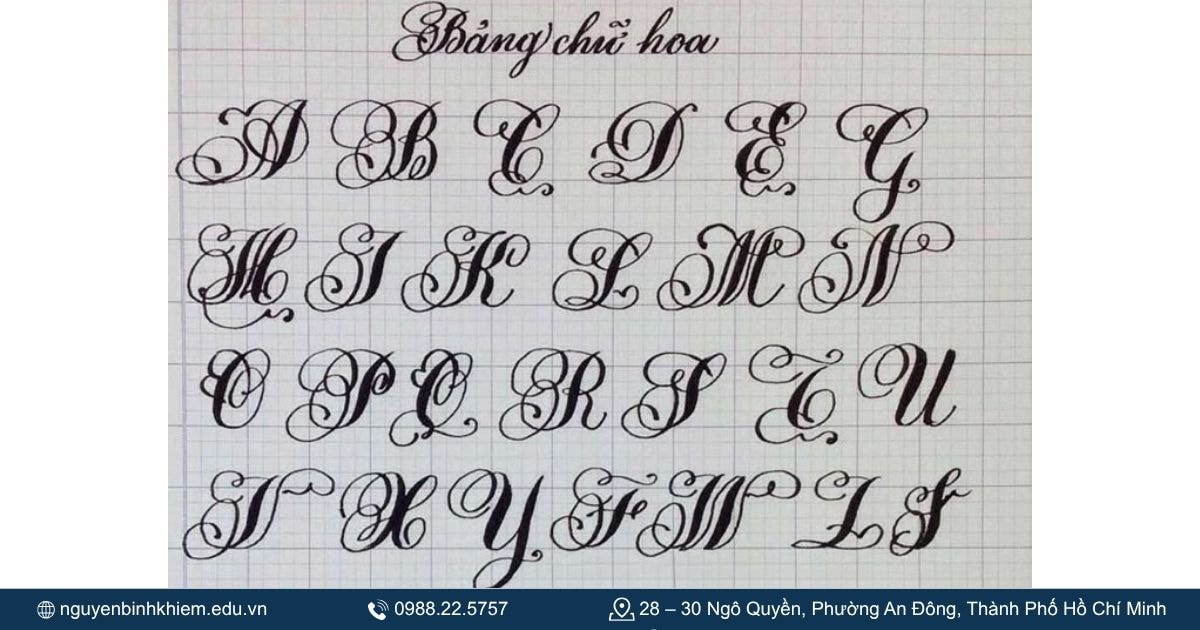 Bảng chữ hoa
A B C D E G
H I K L M N
O P Q R S T U
V X Y F W Z
nguyenbinhkhiem.edu.vn 0988.22.5757 28 – 30 Ngô Quyền, Phường An Đông, Thành Phố Hồ Chí Minh